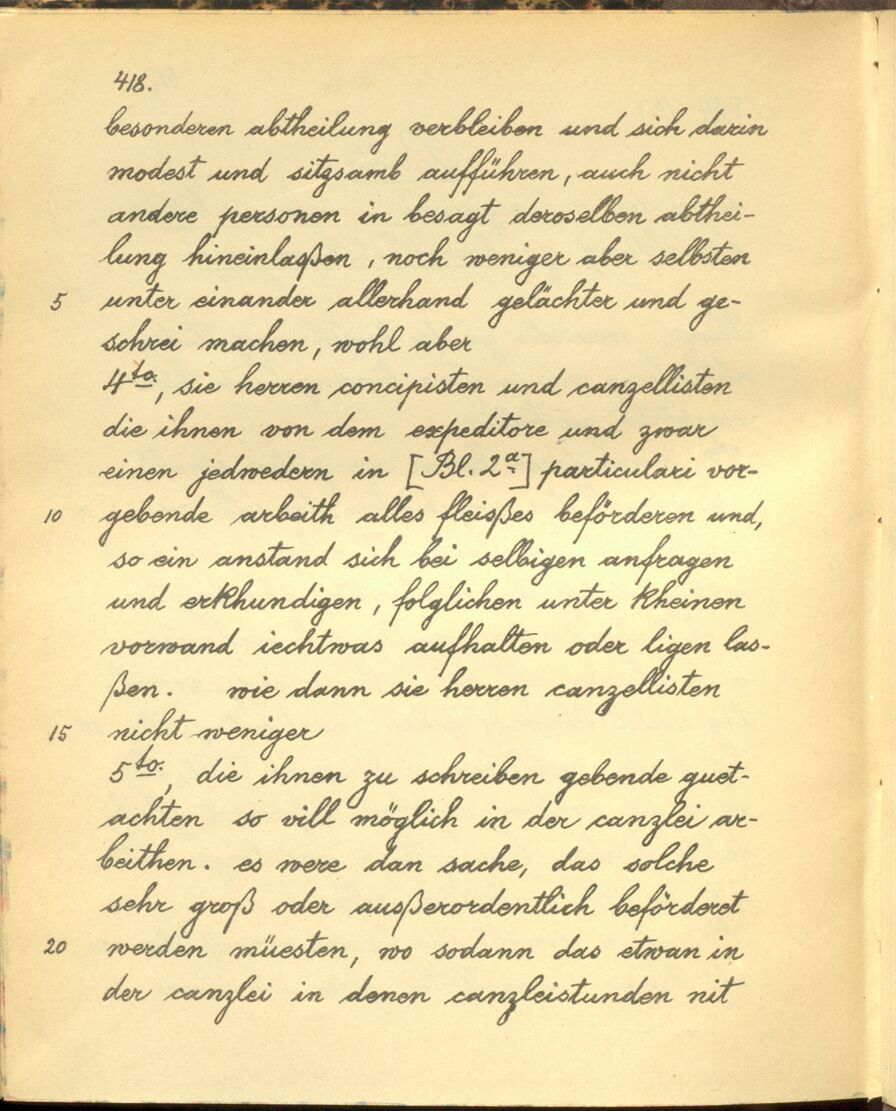 418.
besonderen abtheilung verbleiben und sich darin
modest und sitzsamb aufführen, auch nicht
andere personen in besagt deroselben abthei-
lung hineinlaßen, noch weniger aber selbsten
5 unter einander allerhand gelächter und ge-
schrei machen, wohl aber
4to:, sie herren concipisten und canzellisten
die ihnen von dem expeditore und zwar
einen jedwedern in [Bl. 2a:] particulari vor-
10 gebende arbeith alles fleißes beförderen und,
so ein anstand sich bei selbigen anfragen
und erkhundigen, folglichen unter kheinen
vorwand iechtwas aufhalten oder ligen las-
ßen. wie dann sie herren canzellisten
15 nicht weniger
5to:, die ihnen zu schreiben gebende guet-
achten so vill möglich in der canzlei ar-
beithen. es were dan sache, das solche
sehr groß oder außerordentlich beförderet
20 werden müesten, wo sodann das etwan in
der canzlei in denen canzleistunden nit